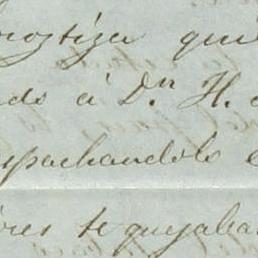 rostiza que
ndo á Dn H.
spachandolo
ores te quejaba